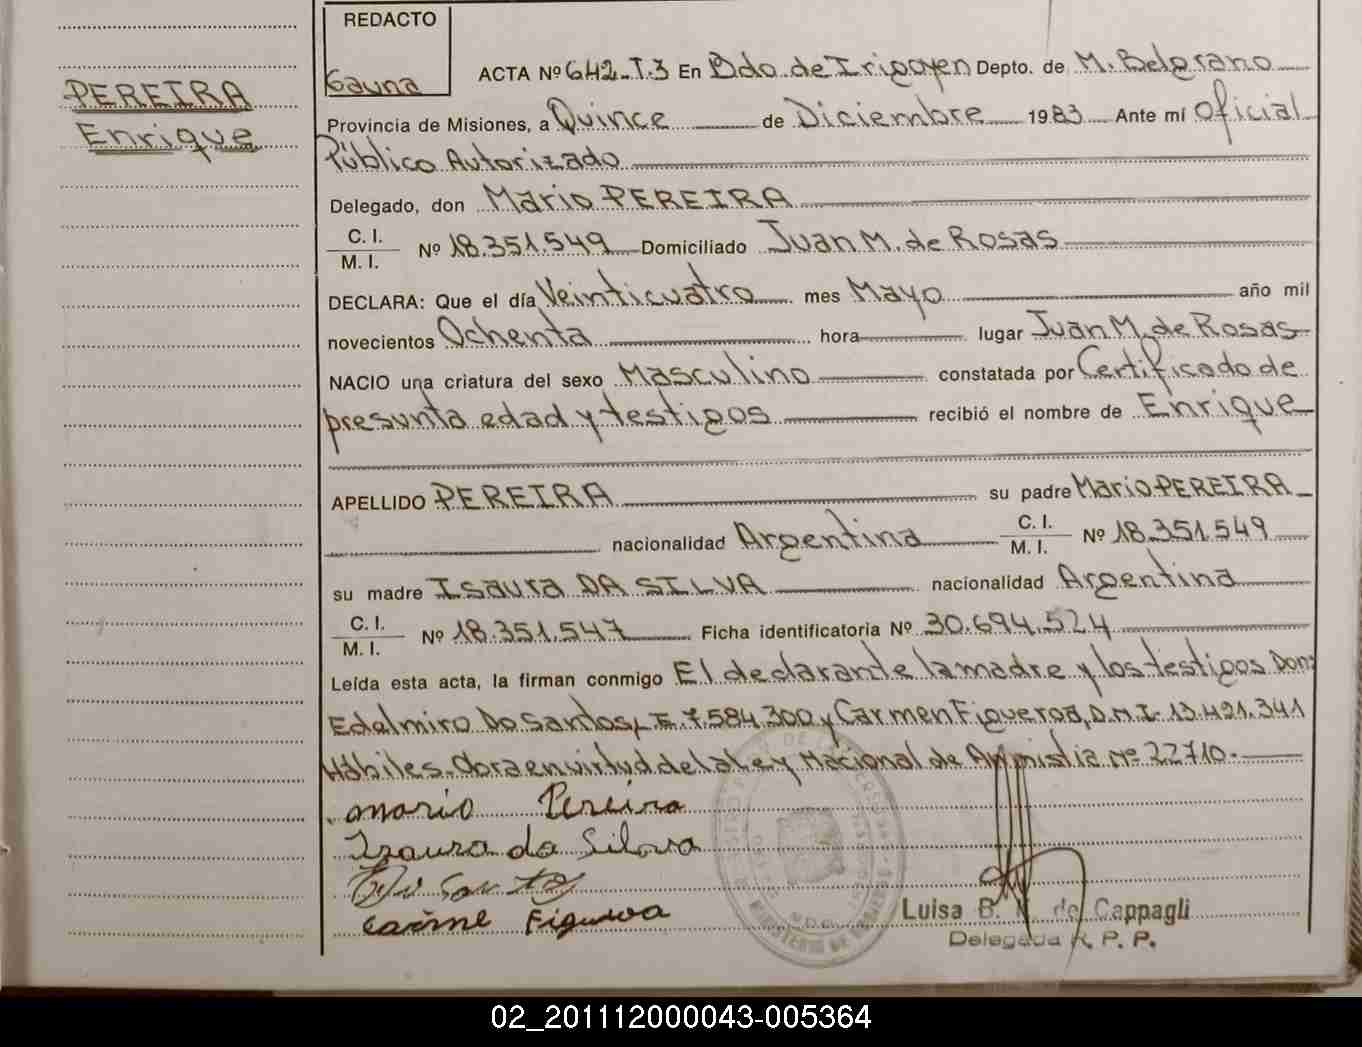 REDACTO
Gauna
PEREIRA
Enrique
ACTA Nº 642-T.3 En Bdo. de Irigoyen Depto. de M. Belgrano
Provincia de Misiones, a Quince de Diciembre 1983 Ante mí Oficial
Público Autorizado
Delegado, don Mario PEREIRA
C. I.
M. I. Nº 18.351.549 Domiciliado Juan M. de Rosas
DECLARA: Que el día Veinticuatro mes Mayo año mil
novecientos Ochenta hora lugar Juan M. de Rosas
NACIO una criatura del sexo Masculino constatada por Certificado de
presunta edad y testigos recibió el nombre de Enrique
APELLIDO PEREIRA su padre Mario PEREIRA
nacionalidad Argentina C. I. M. I. Nº 18.351.549
su madre Isaura DA SILVA nacionalidad Argentina
C. I.
M. I. Nº 18.351.547 Ficha identificatoria Nº 30.694.524
Leída esta acta, la firman conmigo El declarante la madre y los testigos Don:
Edelmiro Do Santos, L.E. 7.584.300 y Carmen Figueroa, D.M.I. 13.421.341
Hábiles. Obra en virtud de la Ley Nacional de Amnistia Nº 22710.
mario Pereira
Izaura da Silva
Carme Figueroa
MINISTERIO DE
Luisa B. de Cappagli
Delegada R. P. P.
02_201112000043-005364